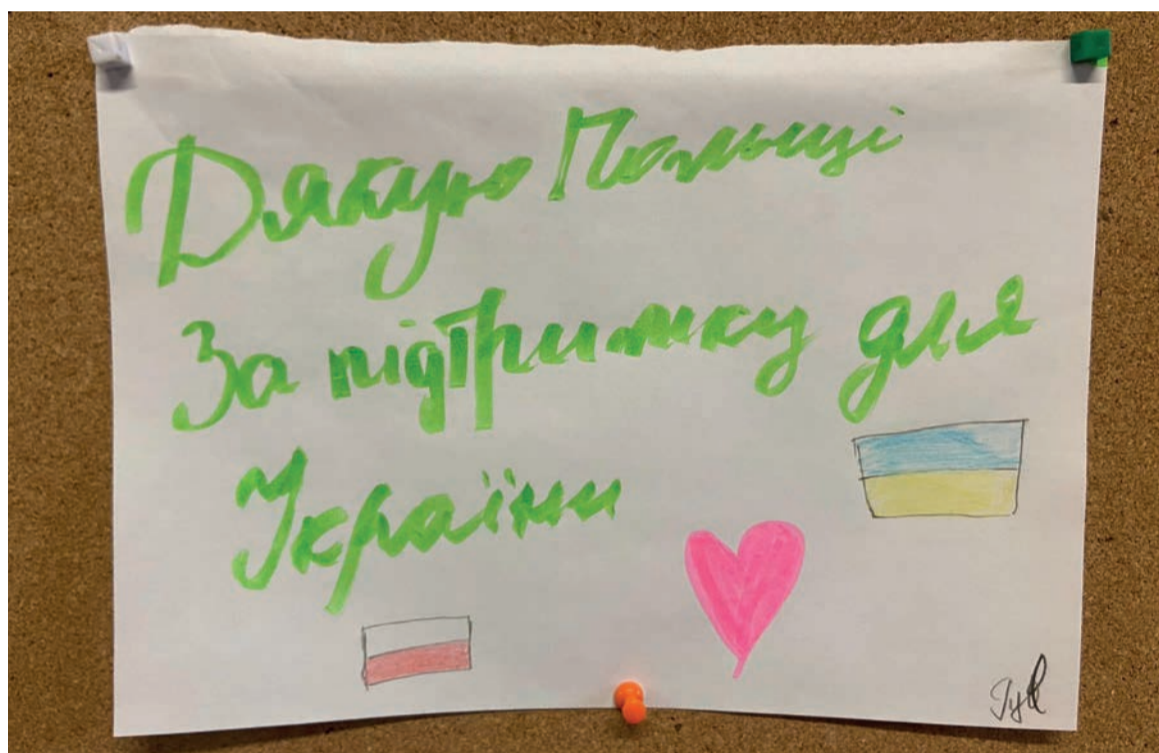 Дякую Польщі
За підтримку для
України